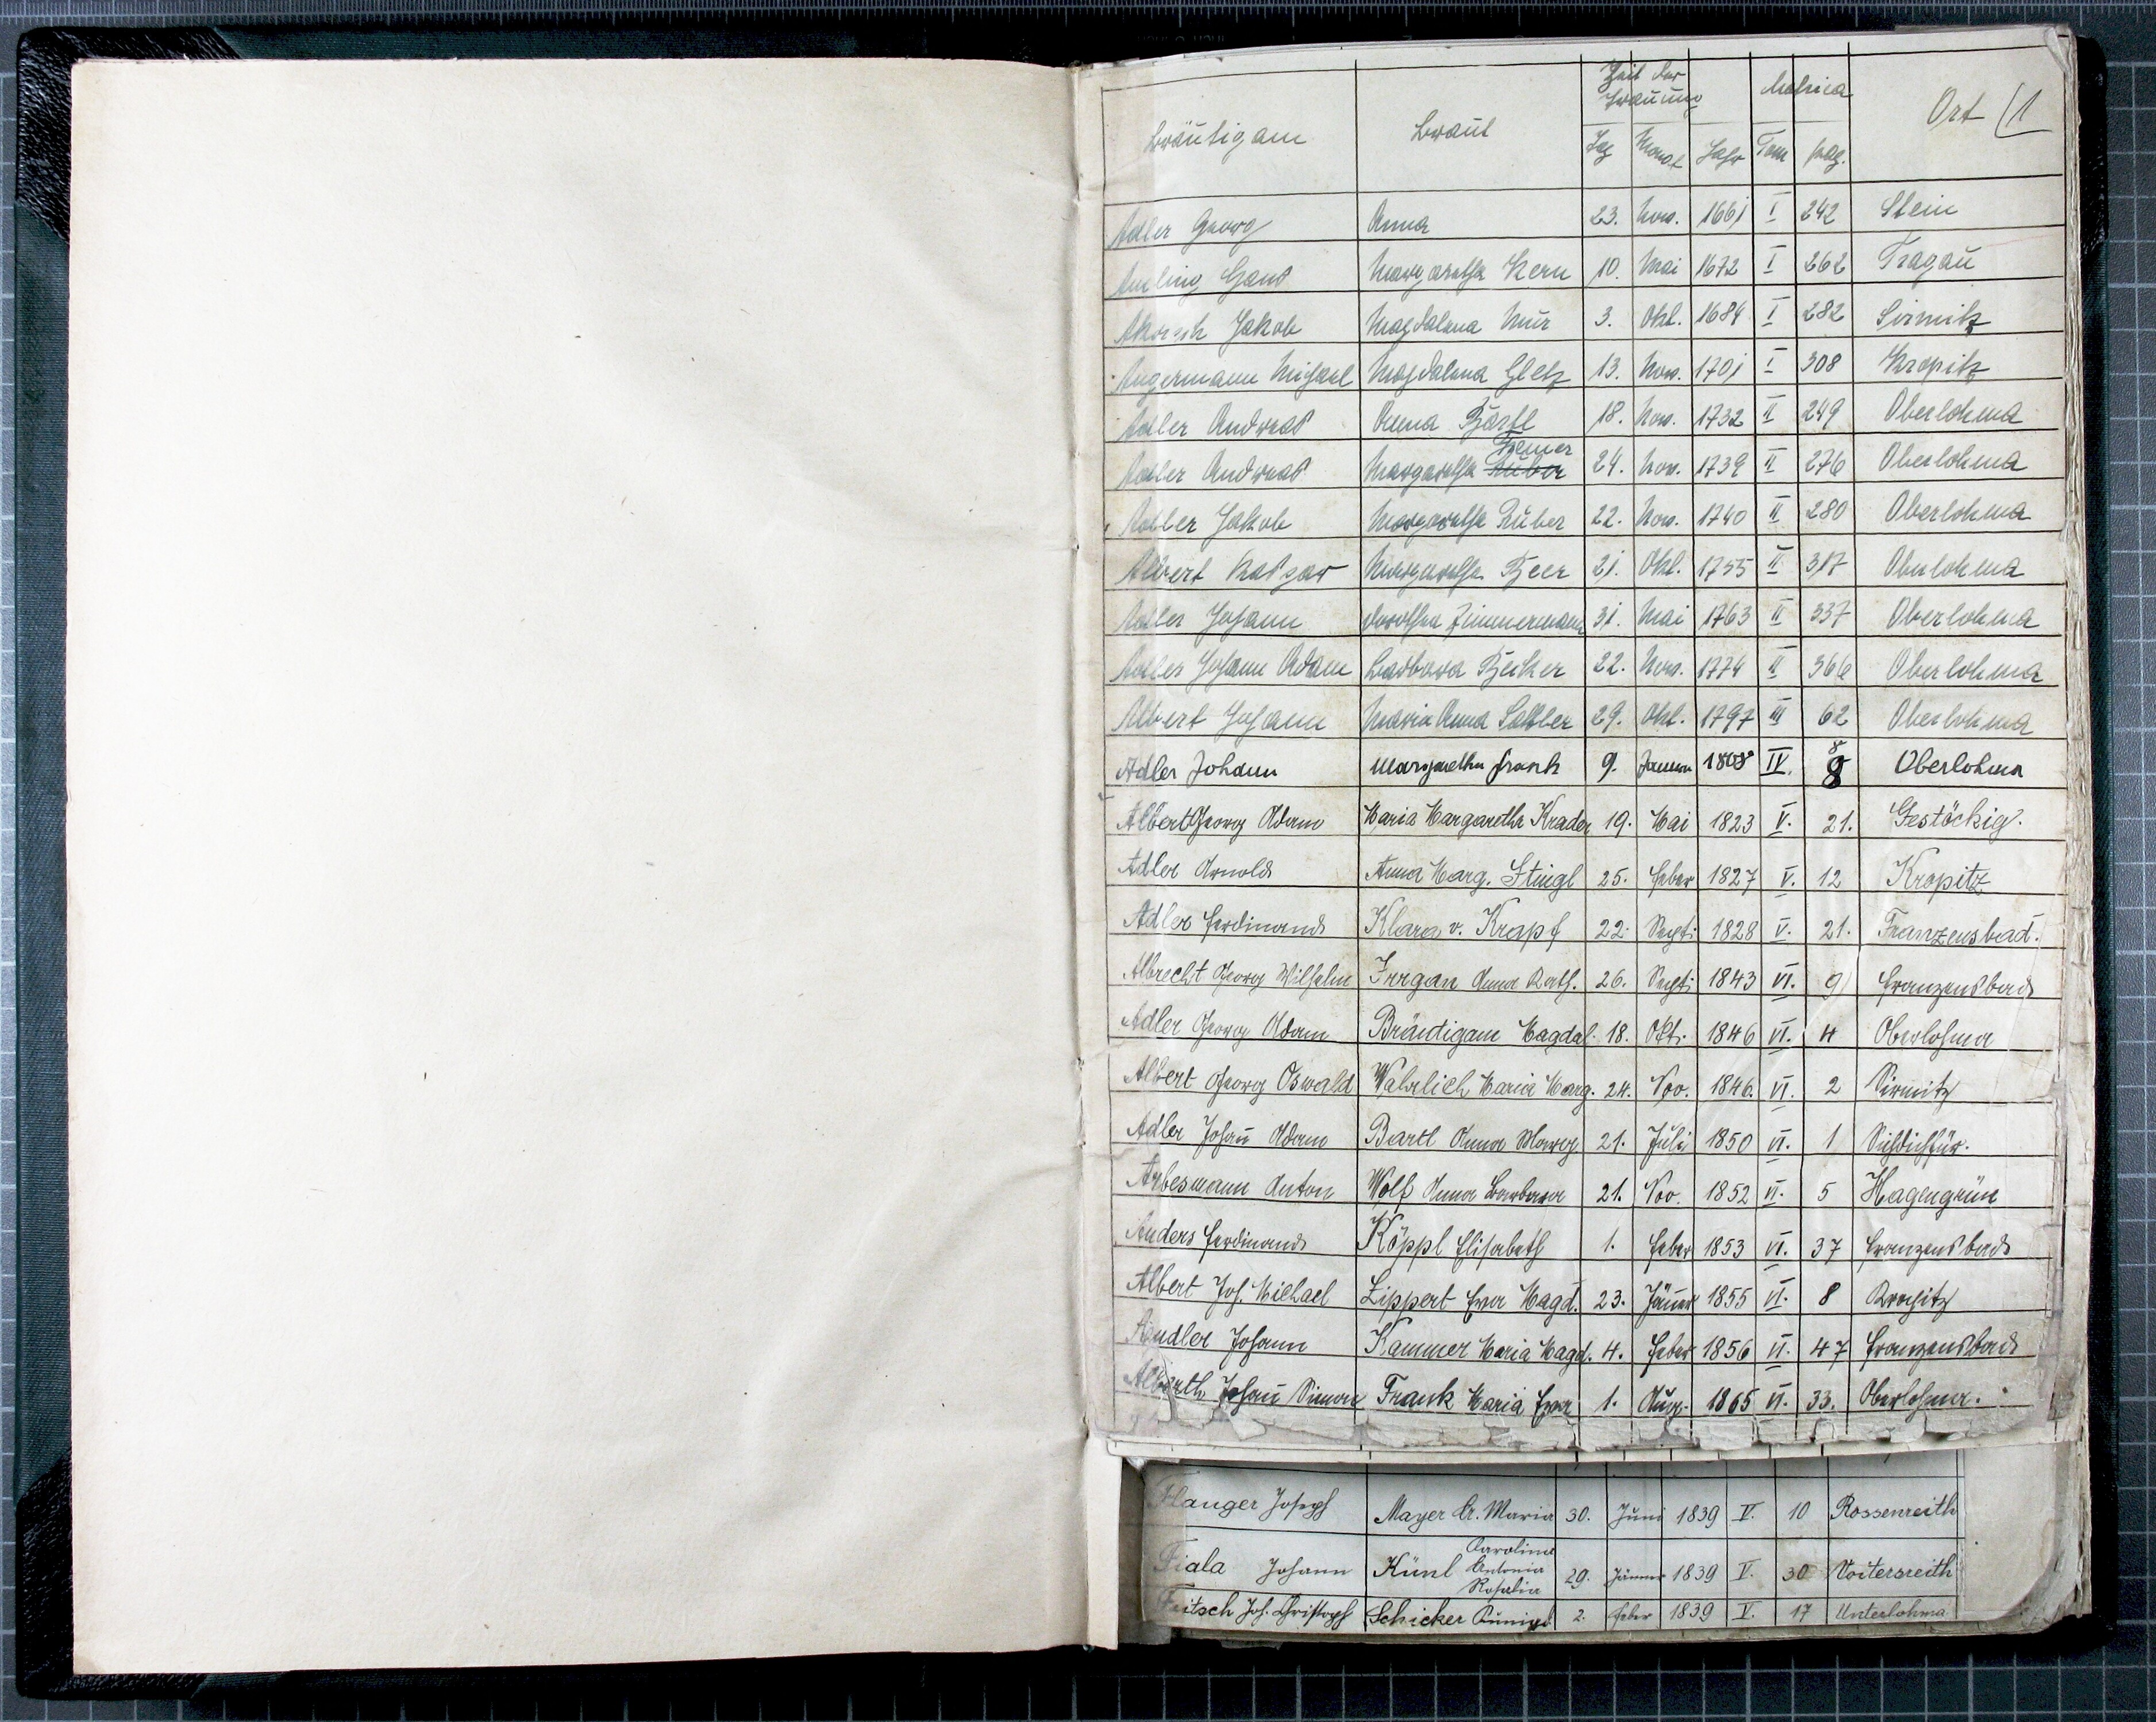 Zeit der Matrica
Bräutigam Braut Trauung Ort (1
Tag Monat Jahr Tom pag.
Adler Georg Anna 23. Nov. 1661 I 242 Stein
Hans Margaretha Kern 10. Mai 1672 I 262 Tragau
Jakob Magdalena 3. Okt. 1684 I 282 Sirmitz
Angermann Michael Magdalena Gletz 13. Nov. 1701 I 308 Kropitz
Adler Andreas Anna 18. Nov. 1732 II 249 Oberlohma
Adler Andreas Margaretha 24. Nov. 1739 II 276 Oberlohma
Adler Jakob Margaretha Huber 22. Nov. 1740 II 280 Oberlohma
Albert Kaspar Margaretha Beer 21. Okt. 1755 II 317 Oberlohma
Adler Johann Dorothea Zimmermann 31. Mai 1763 II 337 Oberlohma
Adler Johann Adam Barbara 22. Nov. 1774 II 366 Oberlohma
Albert Johann Maria Anna Sattler 29. Okt. 1797 III 62 Oberlohma
Adler Johann Margaretha Frank 9. 1808 IV. 8 Oberlohma
Albert Georg Adam Maria Margaretha Krader 19. Mai 1823 V. 21. Gestöckig.
Adler Arnold Anna Marg. Stingl 25. Feber 1827 V. 12 Kropitz
Adler Ferdinand Klara v. Krapf 22. Sept. 1828 V. 21. Franzensbad.
Albrecht Georg Wilhelm Irrgan Anna Kath. 26. Sept. 1843 VI. 9 Franzensbad
Adler Georg Adam Bräutigam Magdal. 18. Okt. 1846 VI. 4 Oberlohma
Albert Georg Oswald Wahrlich Maria Marg. 24. Nov. 1846. VI. 2 Sirmitz
Adler Johañ Adam Bartl Anna Marg. 21. Juli 1850 VI. 1 Sichdichfür.
Arbesmann Anton Wolf Anna Barbara 21. Nov. 1852 VI. 5 Hagengrün
Anders Ferdinand Köppl Elisabeth 1. Feber 1853 VI. 37 Franzensbad
Albert Joh. Michael Lippert Eva Magd. 23. Jäner 1855 VI. 8 Kropitz
Johann Kammer Maria Magd. 4. Feber 1856 VI. 47 Franzensbad
Alberth Johañ Simon Frank Maria Eva 1. Aug. 1865 VI. 33. Oberlohma.
Flanger Joseph Mayer A. Maria 30. Juni 1839 V. 10 Rossenreith
Karolina
Fiala Johann Künl Antonia 29. Jänner 1839 V. 30 Voitersreith
Rosalia
Fritsch Joh. Christoph Schicker Kunigd. 2. Feber 1839 V. 17 Unterlohma